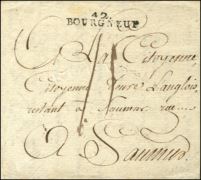 42
BOURGNEUF
A La Citoyenne
Citoyenne Veuve Langlois
restant à Saumur rue
A Saumur